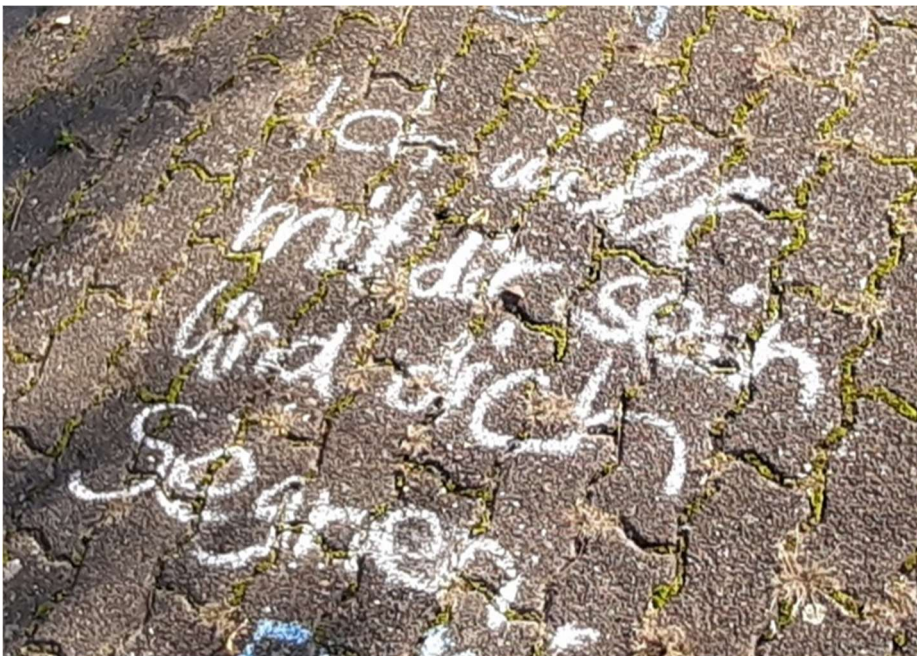 Ich will
mit dir sein
Und dich
Segnen